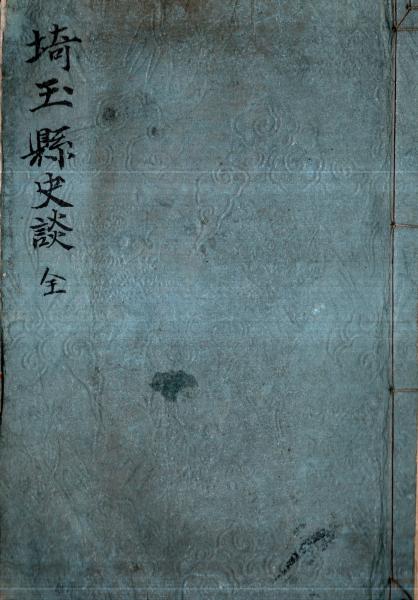 埼玉縣史談 全